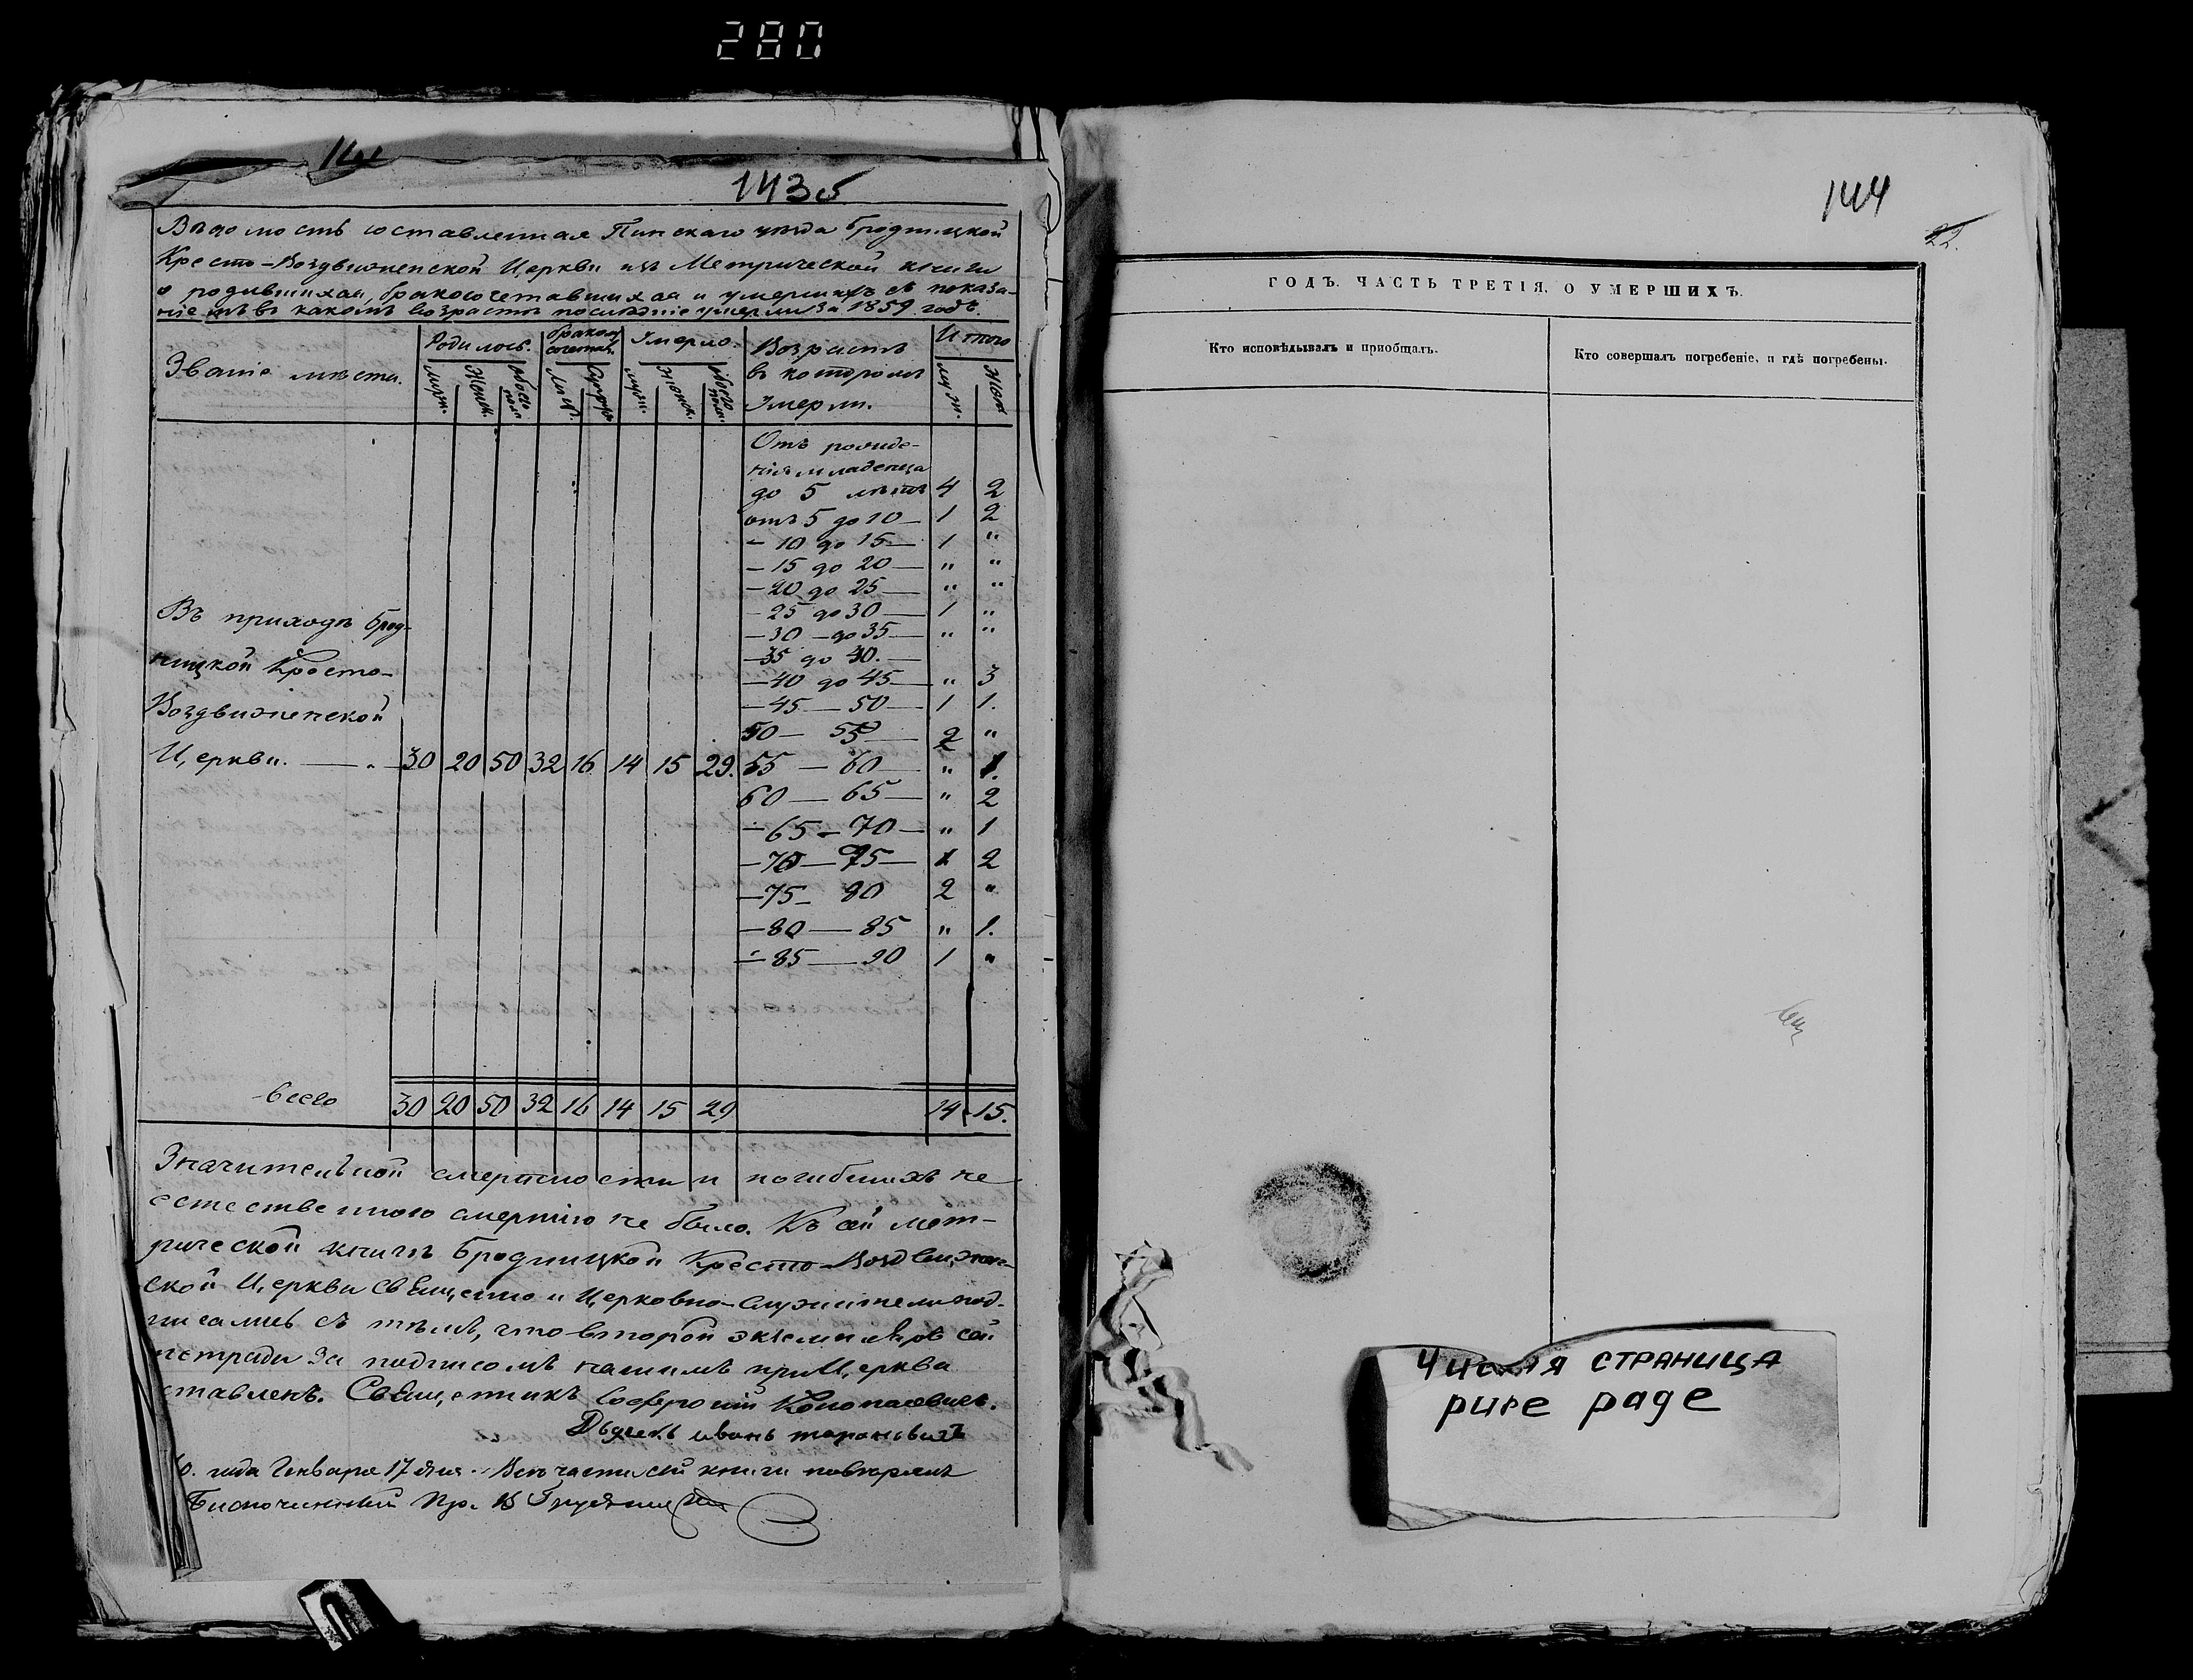 280
143 б
Вѣдомость составленная Пинскаго уѣзда Бродницкой
Кресто-Воздвиженской Церкви изъ Метрической книги
о родившихся, бракосочетавшихся и умершихъ съ показа-
ніемъ въ какомъ возрастѣ послѣдніе умерли за 1859 годъ.
Званіе мѣста. Родилось. Бракомъ сочетал. Умерло. Возрастъ въ которомъ Умерли. Итого
Мужч. Женск. Обоего пола. Лицъ. Супруж. Мужч. Женск. Обоего пола. мужч. Жен
Отъ рожде-
нія младенца
до 5 лѣтъ 4 2
отъ 5 до 10 — 1 2
— 10 до 15 — 1 "
— 15 до 20 — " "
— 20 до 25 — " "
— 25 до 30 — 1 "
— 30 — до 35 — " "
— 35 до 40. —
— 40 до 45 — " 3
— 45 — 50 — 1 1.
50 — 55 — 2 "
55 — 60 — " 1.
60 — 65 — " 2
— 65 — 70 — " 1
— 70 — 75 — 1 2
— 75 — 80 2 "
— 80 — 85 " 1.
— 85 — 90 1 "
Въ приходѣ Брод-
ницкой Кресто-
Воздвиженской
Церкви. — 30 20 50 32 16 14 15 29.
Всего 30 20 50 32 16 14 15 29 14 15.
Значительной смертности и погибшихъ не
естественною смертію не было. Къ сей мет-
рической книгѣ Бродницкой Кресто-Воздвижен-
ской Церкви Священно и Церковно-Служители под-
писались съ тѣмъ, что второй экземпляръ сей
тетради за подписомъ нашимъ при Церкви
ставленъ. Священникъ Софроній Конопасевичъ.
Дьячекъ иванъ тарановичъ
года Генваря 17 дня. Всѣ части сей книги повѣрялъ
Благочинный
144
22.
ГОДЪ. ЧАСТЬ ТРЕТІЯ, О УМЕРШИХЪ.
Кто исповѣдывалъ и пріобщалъ.
Кто совершалъ погребеніе, и гдѣ погребены.
Чистая СТРАНИЦА
pure page